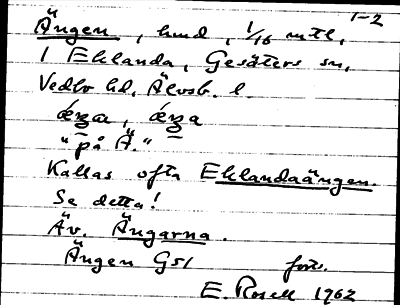 1-2
Ängen, hmd, 1/16 mtl,
i Eklanda, Gesäters sn,
Vedbo hd, Älvsb. l.
"på Ä."
Kallas ofta Eklandaängen.
Se detta!
Äv. Ängarna.
Ängen GS1 forts.
E. Rosell 1962